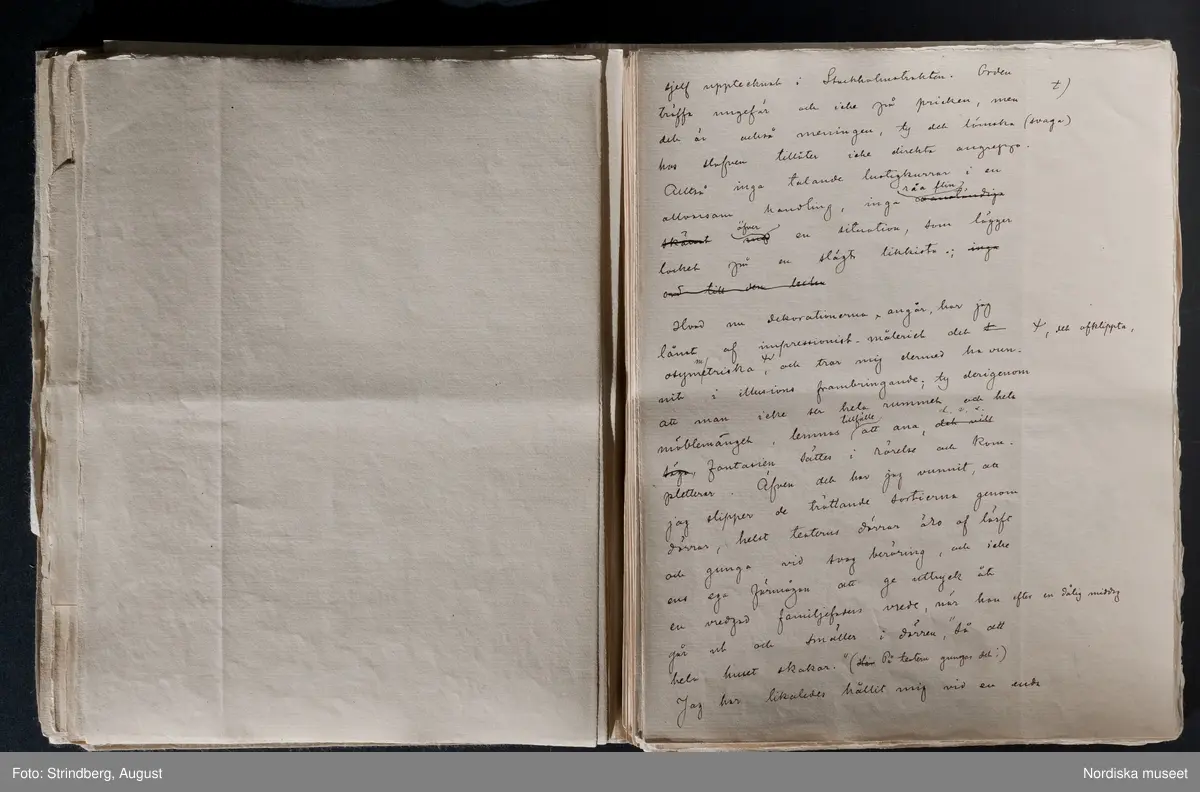 sjelf upptecknat i Stockholmstrakten. Orden
träffa ungefär och icke på pricken, men t)
det är också meningen, ty det lömska (svaga)
hos slafven tillåter icke direkta angrepp.
Alltså inga talande lustigkurrar i en
råa flin
allvarsam handling, inga oanständiga
öfver
skämt med en situation, som lägger
locket på en slägts likkista.; inga
ord till den
Hvad nu dekorationerna angår, har jag
lånat af impressionist-måleriet det t +, det afklippta,
asymmetriska +, och tror mig dermed ha vun-
nit i illusions frambringande; ty derigenom
att man icke ser hela rummet och hela
tillfälle d. v. s.
möblemanget, lemnas att ana, det vill
säga, fantasien sättes i rörelse och kom-
pletterar. Äfven det har jag vunnit, att
jag slipper de tröttande sortierna genom
dörrar, helst teaterns dörrar äro af lärft
och gunga vid svag beröring, och icke
ens ega förmågan att ge uttryck åt
en vredgad familjefaders vrede, när han efter en dålig middag
går ut och smäller i dörren, "så att
hela huset skakar." (På teatern gungar det!)
Jag har likaledes hållit mig vid en enda
Foto: Strindberg, August
Nordiska museet